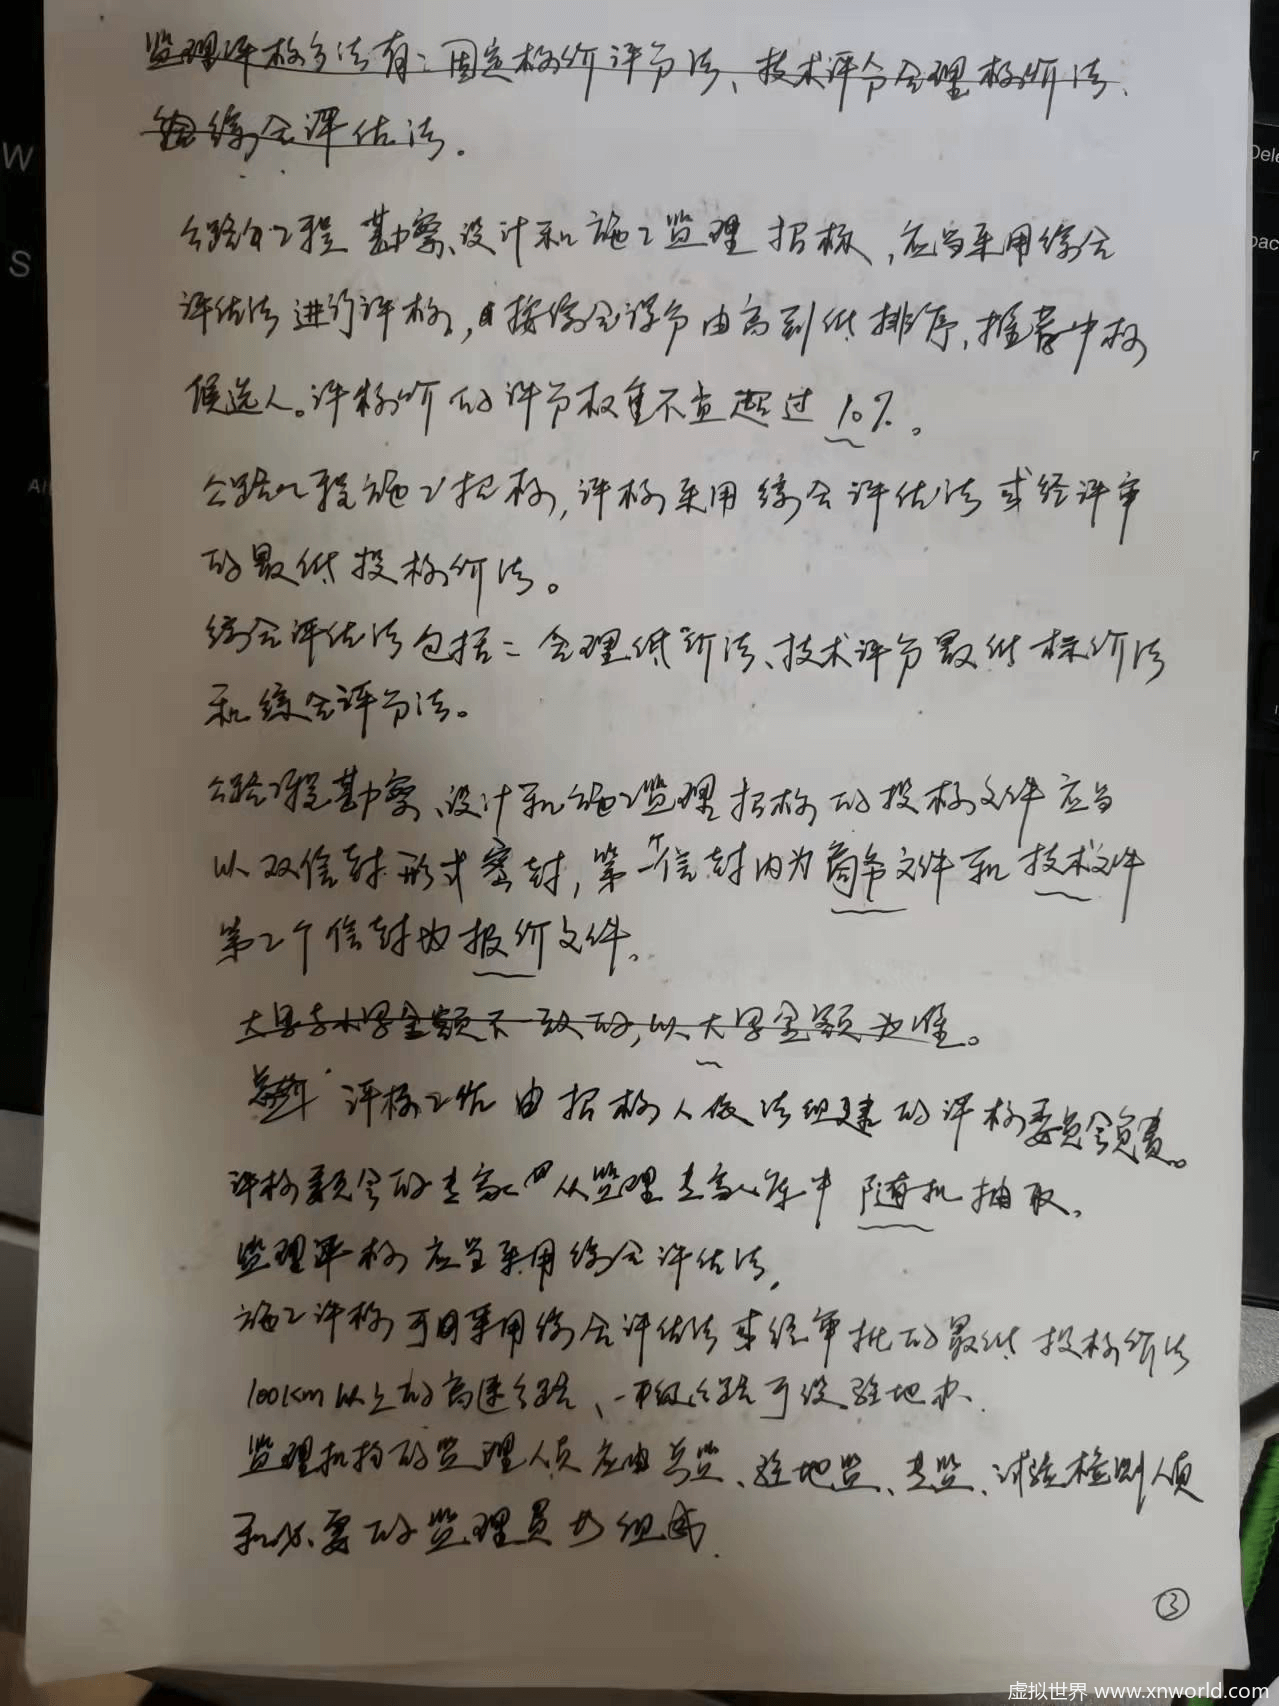 监理评标方法有：固定标价评分法、技术评分合理标价法、
综合评估法。
公路工程勘察、设计和施工监理招标，应当采用综合
评估法进行评标，按综合得分由高到低排序，推荐中标
候选人。评标价的评分权重不宜超过10%。
公路工程施工招标，评标采用综合评估法或经评审
的最低投标价法。
综合评估法包括：合理低价法、技术评分最低标价法
和综合评分法。
公路工程勘察、设计和施工监理招标的投标文件应当
以双信封形式密封，第一个信封内为商务文件和技术文件
第二个信封为报价文件。
大写与小写金额不一致的，以大写金额为准。
评标工作由招标人依法组建的评标委员会负责。
评标委员会的专家从监理专家库中随机抽取。
监理评标应当采用综合评估法，
施工评标可采用综合评估法或经审批的最低投标价法
100km以上的高速公路、一级公路可设驻地办.
监理机构的监理人员应由总监、驻地监、专监、试验检测人员
和必要的监理员等组成.
③
W
S
Al
Dele
oac
虚拟世界 www.xnworld.com